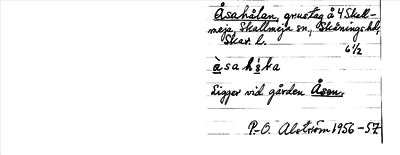 Åsahålan, grustag å 4 Skall-
meja, Skallmeja sn, Skånings hd,
Skar. l.
6 1/2
à s a h å̀ l a
Ligger vid gården Åsen.
P-O. Alström 1956-57